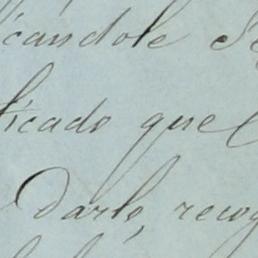 cándole
ticado que
darlo, recog